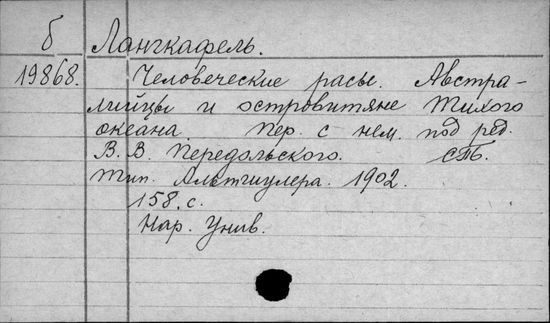 б Лангкафель.
19868. Человеческие расы. Австра-
лийцы и островитяне Тихого
океана. Пер. с нем. под ред.
В. В. Передольского. СПб.
Тип. Альтшулера. 1902.
158. с.
Нар. Унив.